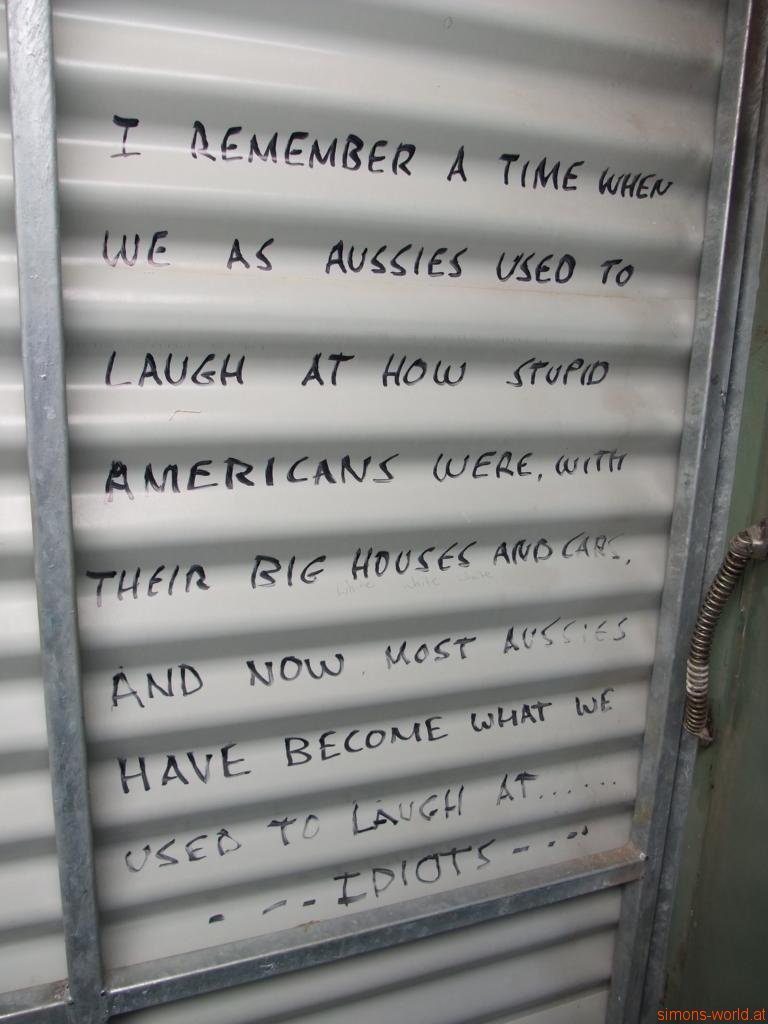 I REMEMBER A TIME WHEN
WE AS AUSSIES USED TO
LAUGH AT HOW STUPID
AMERICANS WERE, WITH
THEIR BIG HOUSES AND CARS,
white white
AND NOW MOST AUSSIES
HAVE BECOME WHAT WE
USED TO LAUGH AT......
- -- IDIOTS - . --
simons-world.at